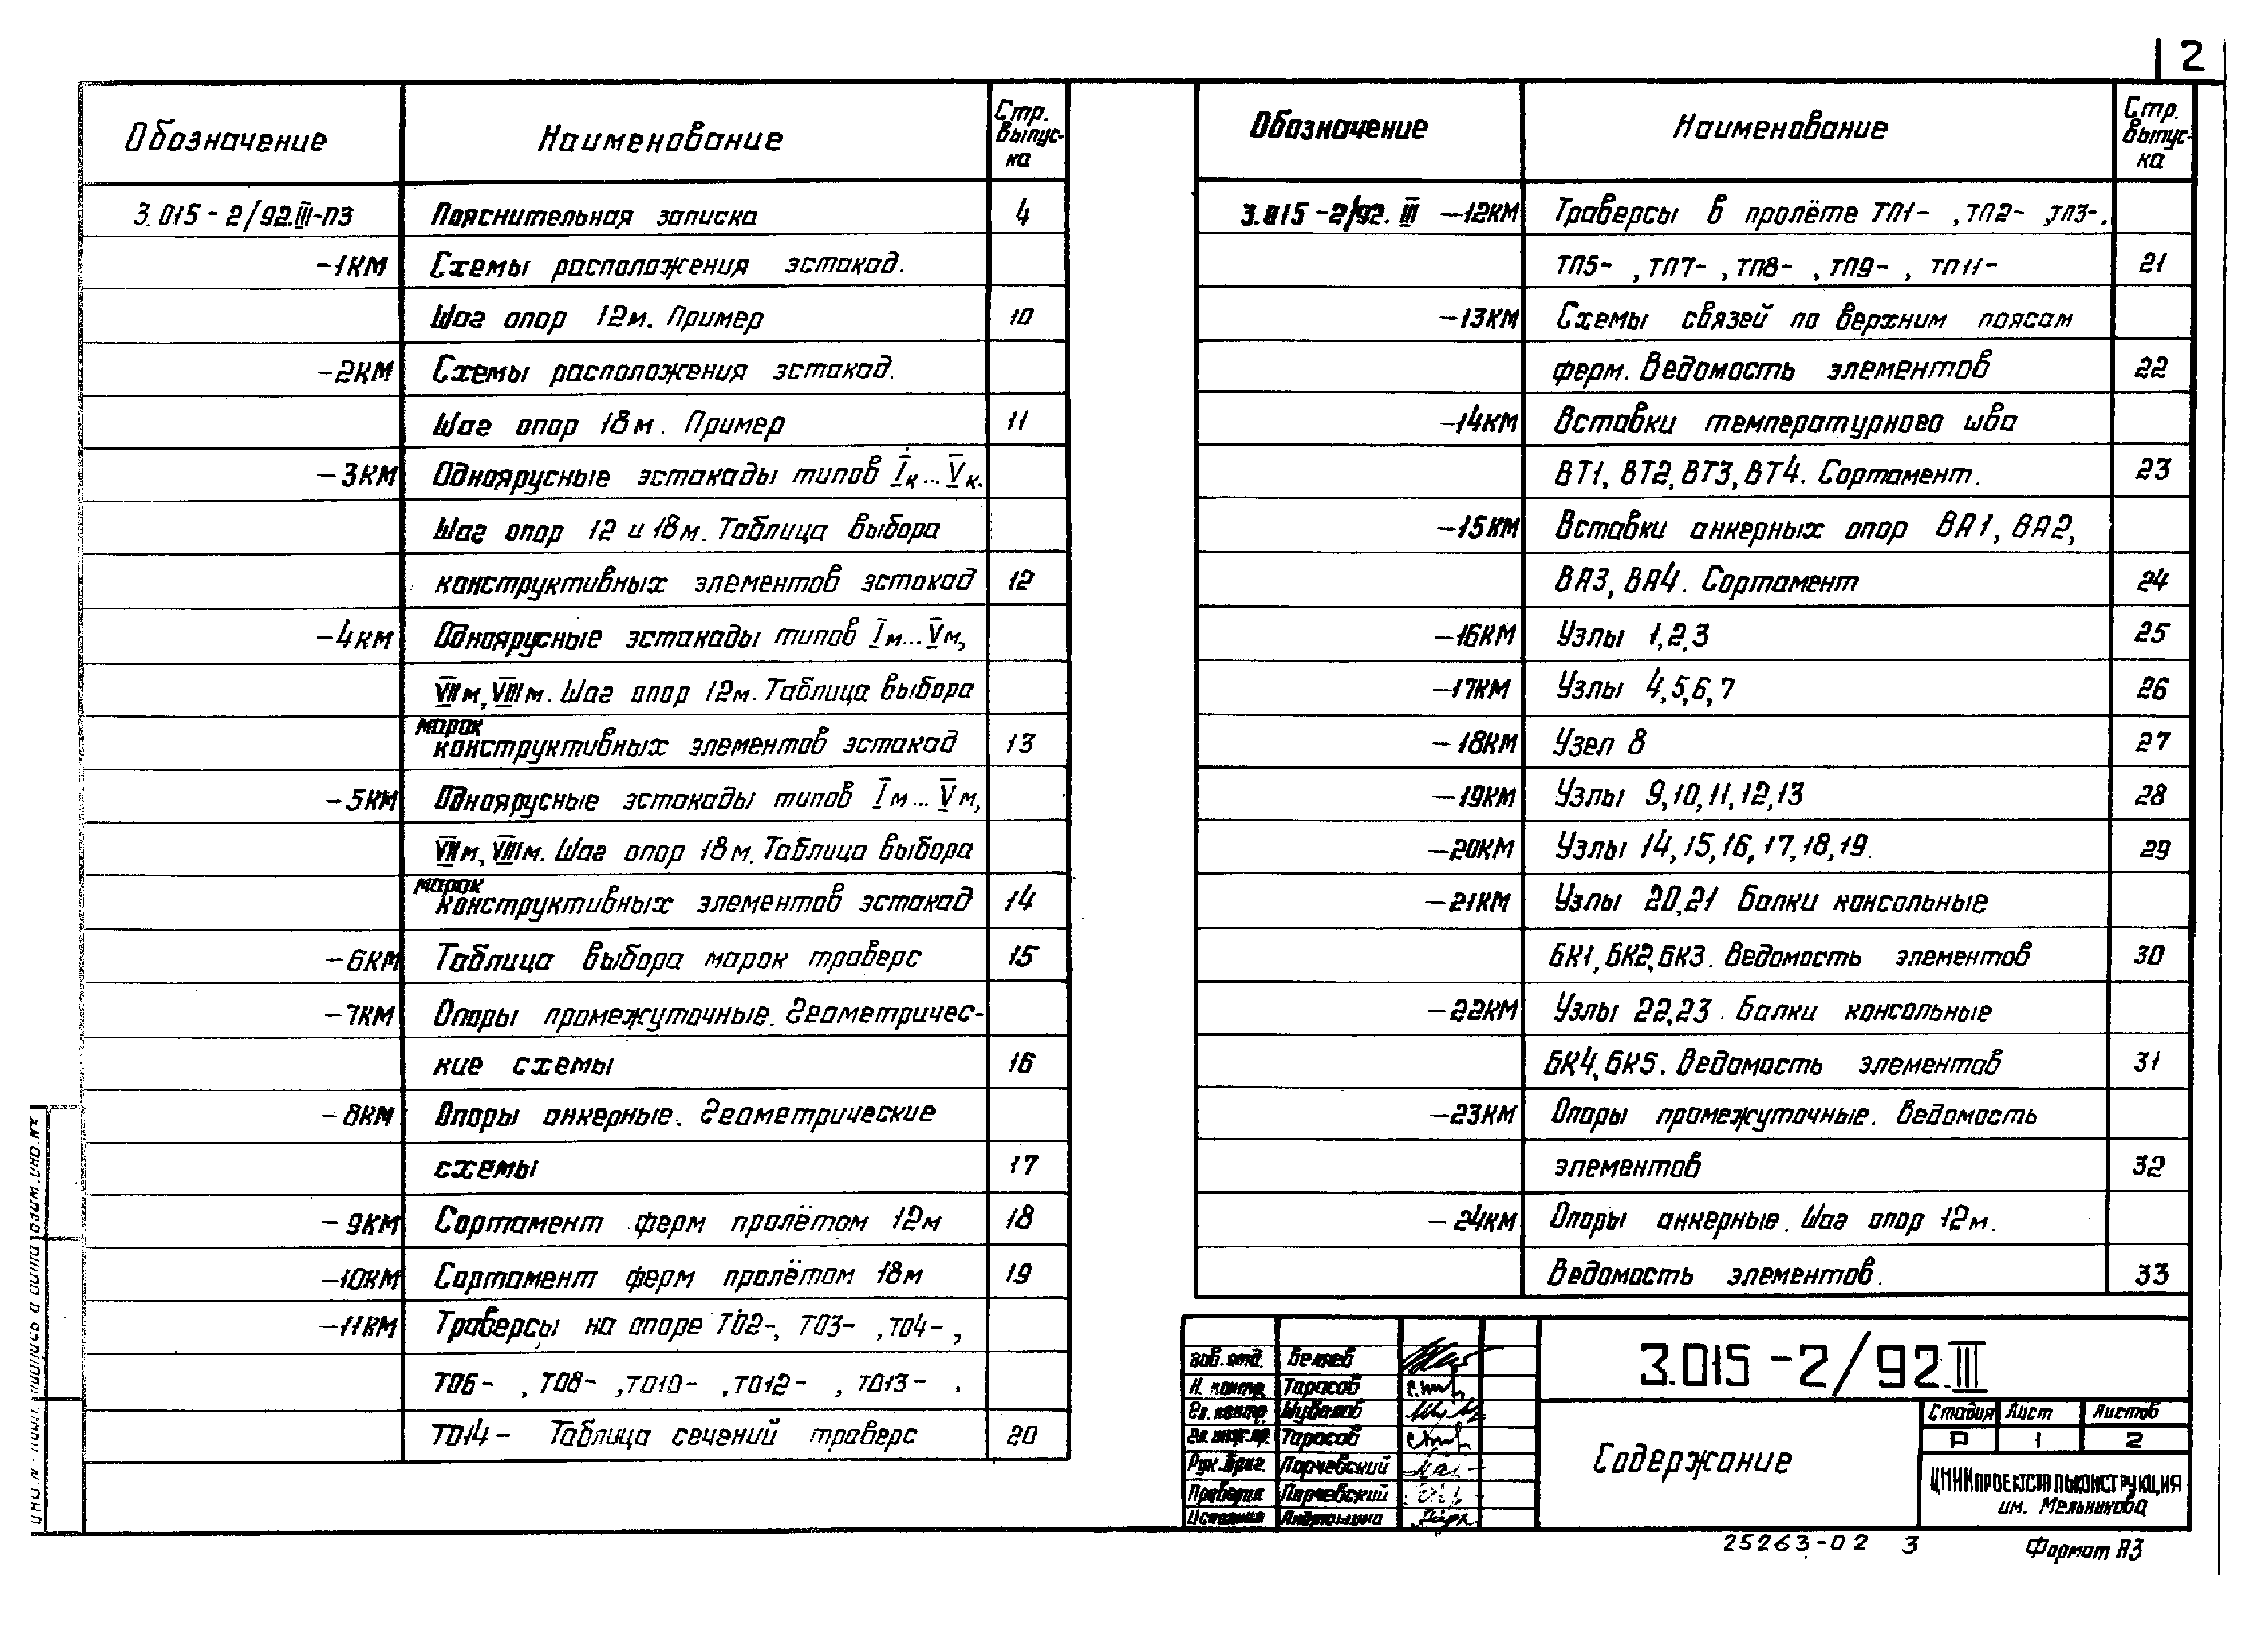 2
Обозначение Наименование Стр. выпус-ка
3.015-2/92.III-ПЗ Пояснительная записка 4
-1КМ Схемы расположения эстакад.
Шаг опор 12м. Пример 10
-2КМ Схемы расположения эстакад.
Шаг опор 18м. Пример 11
-3КМ Одноярусные эстакады типов Iк...Vк.
Шаг опор 12 и 18м. Таблица выбора
конструктивных элементов эстакад 12
-4КМ Одноярусные эстакады типов Iм...Vм,
VIIм, VIIIм. Шаг опор 12м. Таблица выбора
марок
конструктивных элементов эстакад 13
-5КМ Одноярусные эстакады типов Iм...Vм,
VIIм, VIIIм. Шаг опор 18м. Таблица выбора
марок
конструктивных элементов эстакад 14
-6КМ Таблица выбора марок траверс 15
-7КМ Опоры промежуточные. Геометричес-
кие схемы 16
-8КМ Опоры анкерные. Геометрические
схемы 17
-9КМ Сортамент ферм пролётом 12м 18
-10КМ Сортамент ферм пролётом 18м 19
-11КМ Траверсы на опоре ТО2-, ТО3- , ТО4- ,
ТО6- , ТО8- , ТО10- , ТО12- , ТО13- .
ТО14- Таблица сечений траверс 20
Обозначение Наименование Стр. выпус-ка
3.015-2/92. III -12КМ Траверсы в пролёте ТП1- , ТП2- , ТП3- ,
ТП5- , ТП7- , ТП8- , ТП9- , ТП11- 21
-13КМ Схемы связей по верхним поясам
ферм. Ведомость элементов 22
-14КМ Вставки температурного шва
ВТ1, ВТ2, ВТ3, ВТ4. Сортамент. 23
-15КМ Вставки анкерных опор ВА1, ВА2,
ВА3, ВА4. Сортамент 24
-16КМ Узлы 1,2,3 25
-17КМ Узлы 4,5,6,7 26
-18КМ Узел 8 27
-19КМ Узлы 9,10,11,12,13 28
-20КМ Узлы 14,15,16,17,18,19. 29
-21КМ Узлы 20,21 Балки консольные
БК1, БК2, БК3. Ведомость элементов 30
-22КМ Узлы 22,23. Балки консольные
БК4, БК5. Ведомость элементов 31
-23КМ Опоры промежуточные. Ведомость
элементов 32
-24КМ Опоры анкерные. Шаг опор 12м.
Ведомость элементов. 33
Зав. отд. Беляев
Н. контр. Тарасов
Гл. констр. Шувалов
Гл. инж. пр. Тарасов
Рук. бриг. Парчевский
Проверил Парчевский
Исполнил Андрюшина
3.015-2/92.III
Содержание
Стадия Лист Листов
Р 1 2
ЦНИИПРОЕКТСТАЛЬКОНСТРУКЦИЯ
им. Мельникова
25263-02 3
Формат А3
Инв. № подл. Подпись и дата Взам. инв. №